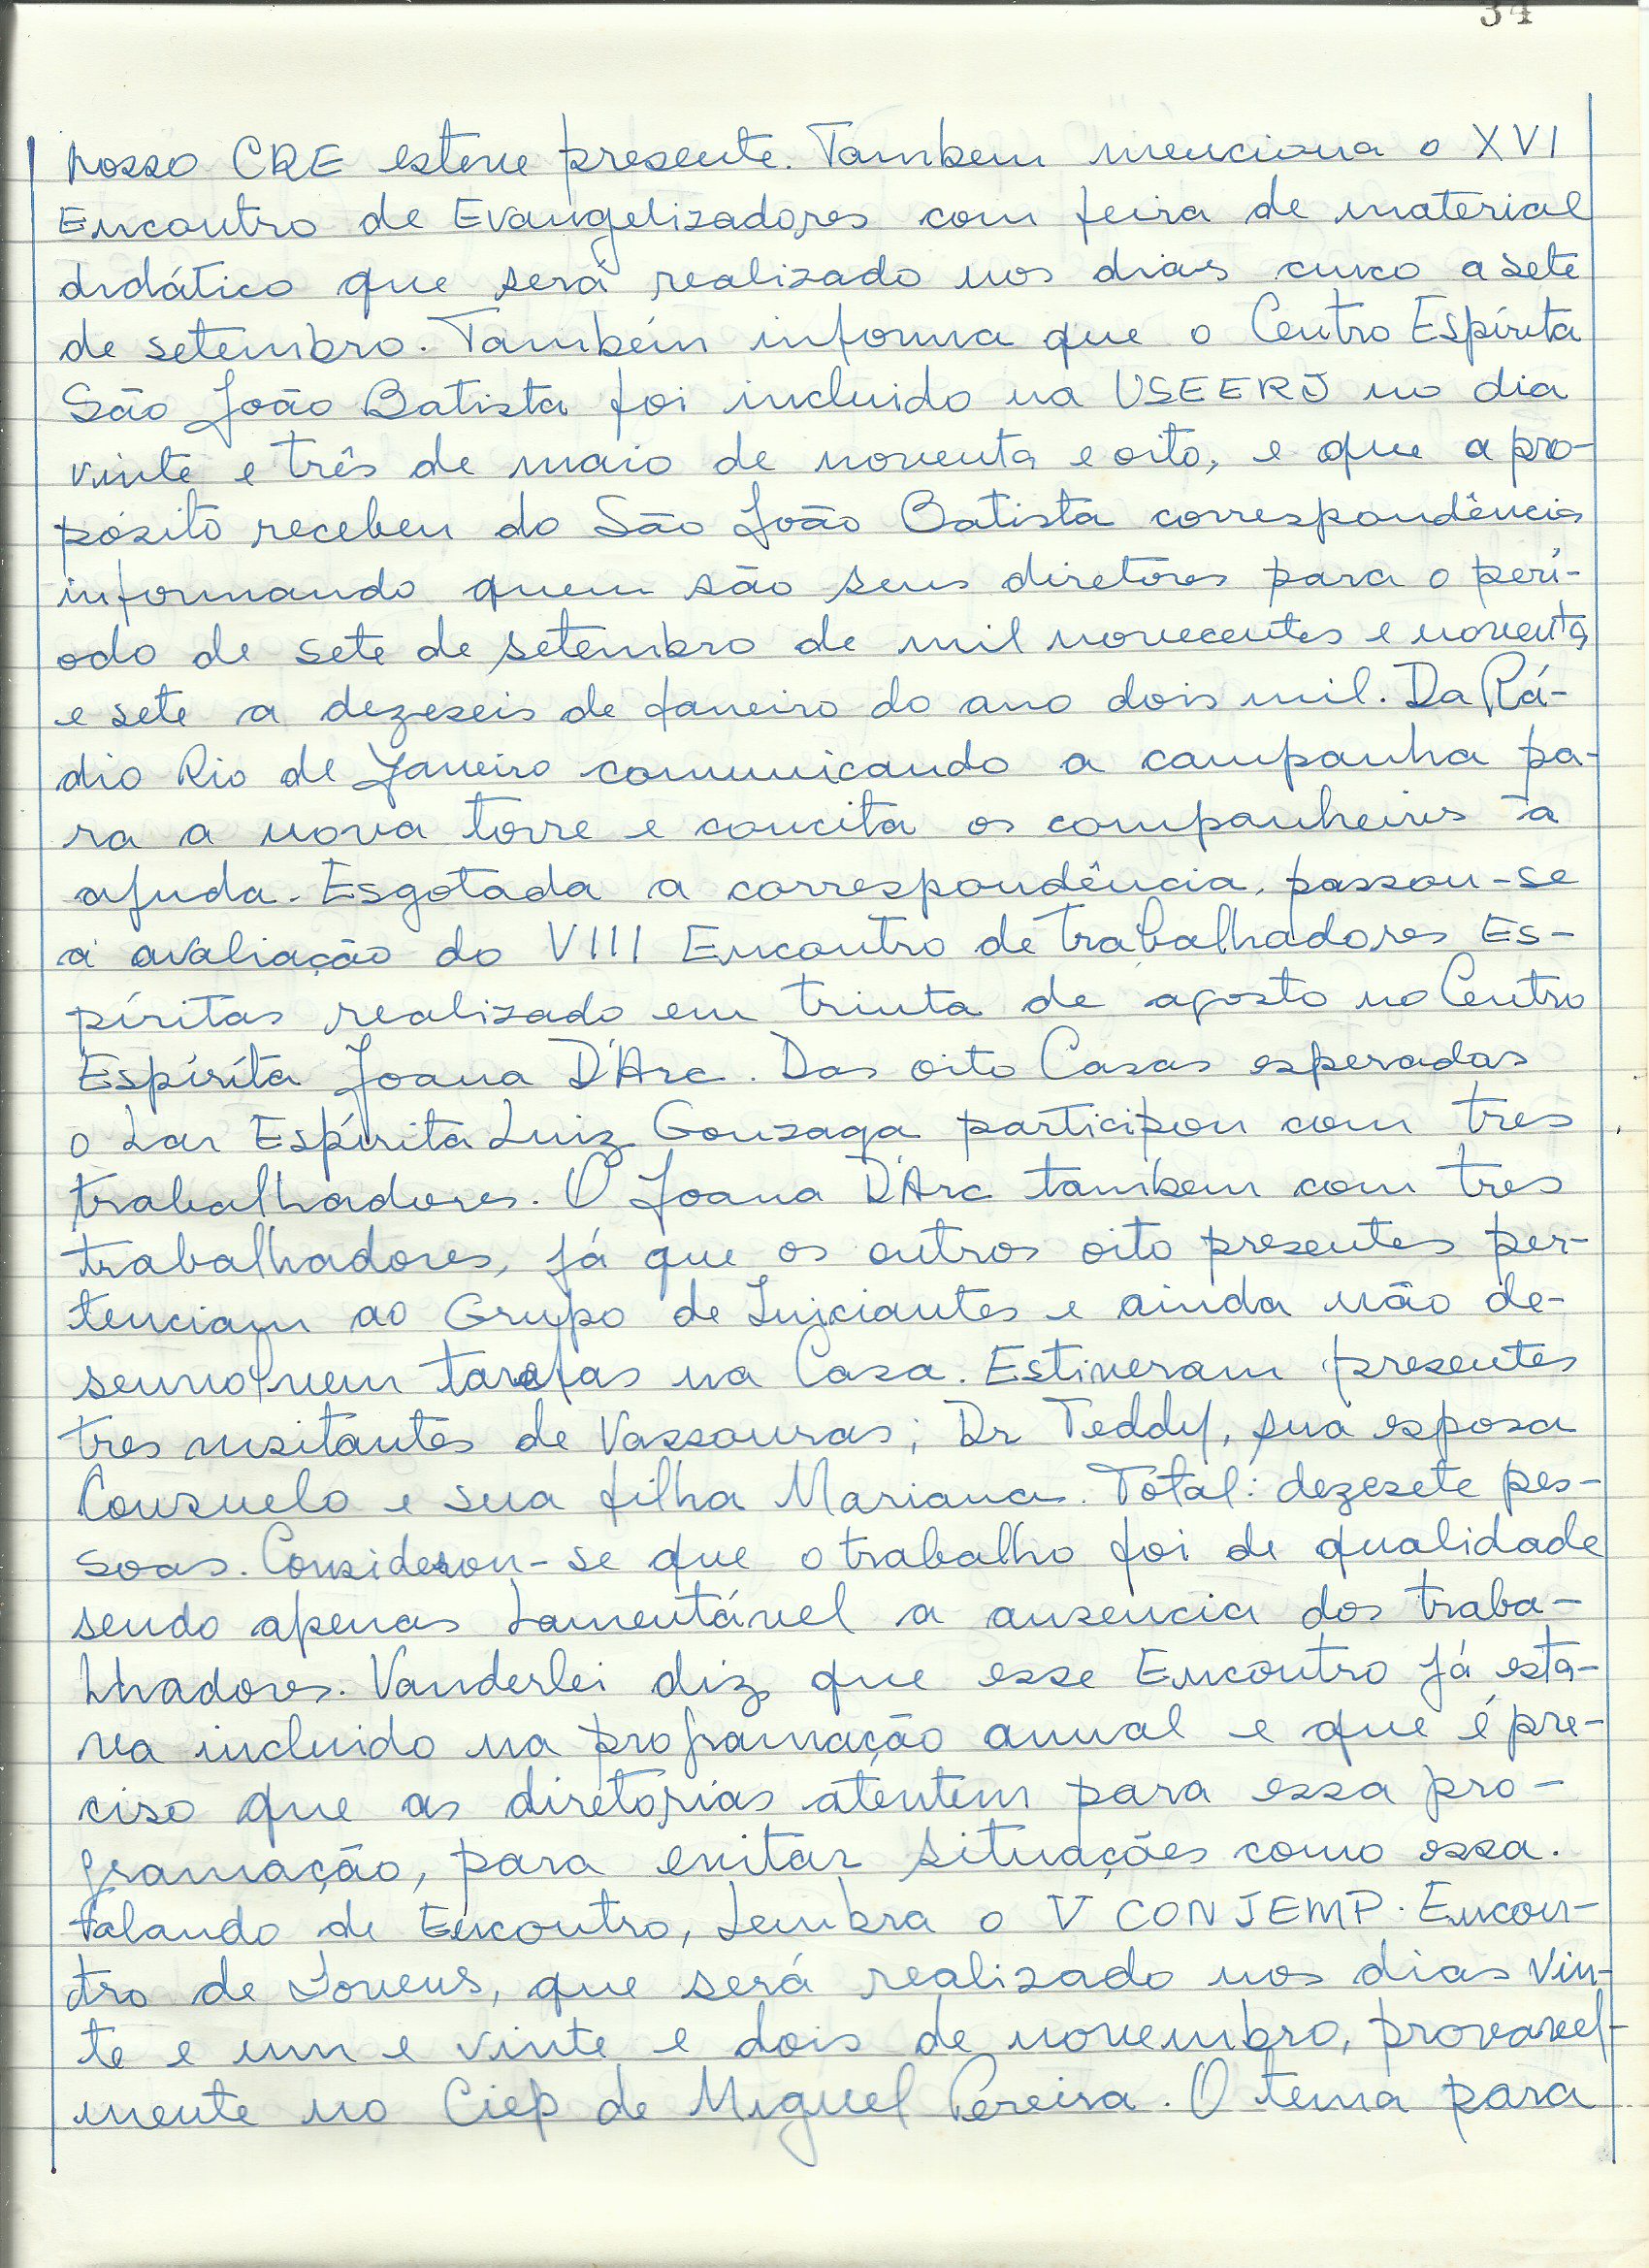 34
nosso CRE esteve presente. Tambem menciona o XVI
Encontro de Evangelizadores com feira de material
didático que será realizado nos dias cinco a sete
de setembro. Também informa que o Centro Espírita
São João Batista foi incluido na USEERJ no dia
vinte e três de maio de noventa e oito, e que a pro-
pósito recebeu do São João Batista correspondência
informando quem são seus diretores para o perí-
odo de sete de setembro de mil novecentos e noventa
e sete a dezeseis de Janeiro do ano dois mil. Da Rá-
dio Rio de Janeiro comunicando a campanha pa-
ra a nova torre e concita os companheiros à
ajuda. Esgotada a correspondência, passou-se
á avaliação do VIII Encontro de Trabalhadores Es-
píritas realizado em trinta de agosto no Centro
Espírita Joana D'Arc. Das oito Casas esperadas
o Lar Espírita Luiz Gonzaga participou com tres
trabalhadores. O Joana D'Arc tambem com tres
trabalhadores, já que os outros oito presentes per-
tenciam ao Grupo de Iniciantes e ainda não de-
senvolvem tarefas na Casa. Estiveram presentes
tres visitantes de Vassouras; Dr Teddy, sua esposa
Consuelo e sua filha Mariana. Total: dezesete pes-
soas. Considerou-se que o trabalho foi de qualidade
sendo apenas lamentável a ausencia dos traba-
lhadores. Vanderlei diz que esse Encontro já esta-
va incluido na programação anual e que é pre-
ciso que as diretorias atentem para essa pro-
gramação, para evitar situações como essa.
Falando de Encontro, lembra o V CONJEMP. Encon-
tro de Jovens, que será realizado nos dias vin-
te e um e vinte e dois de novembro, provavel-
mente no Ciep de Miguel Pereira. O tema para